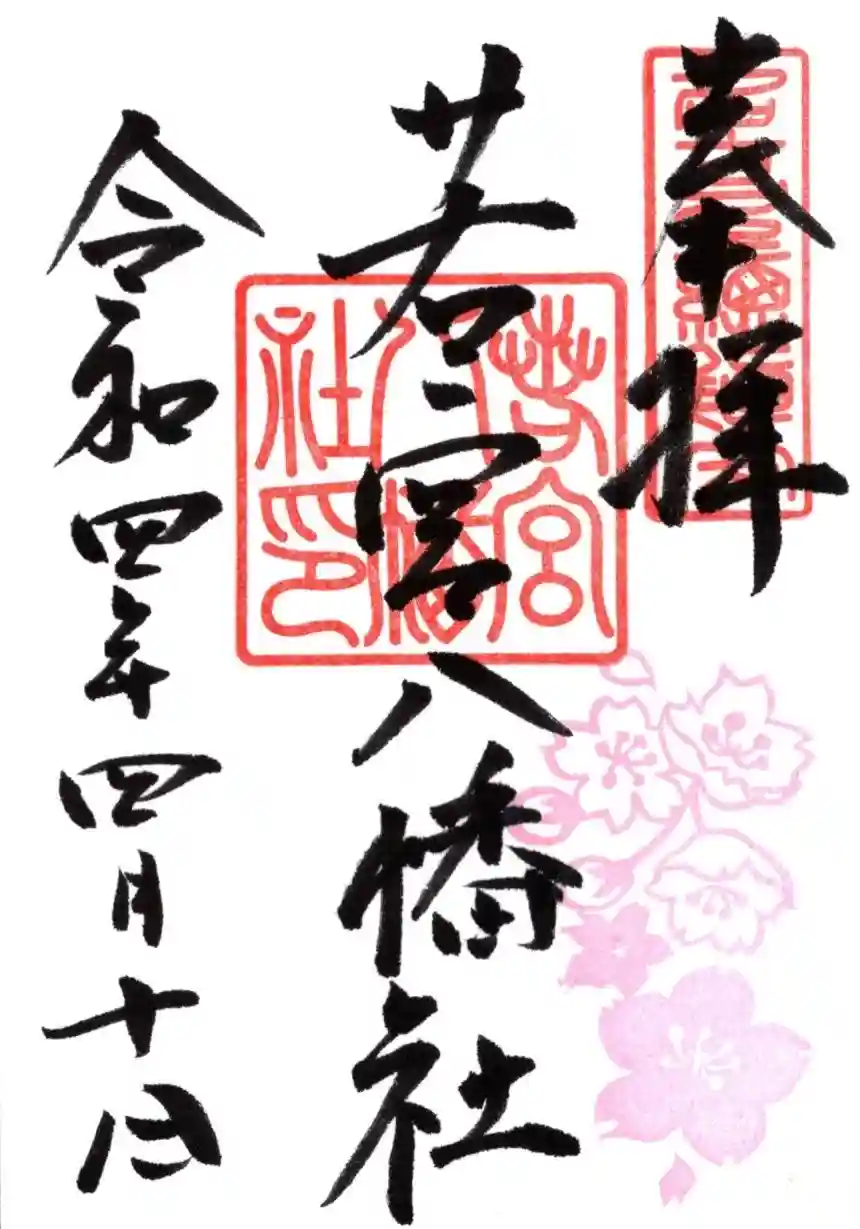 奉拝
若宮八幡社
令和四年四月十日
若宮八幡社印